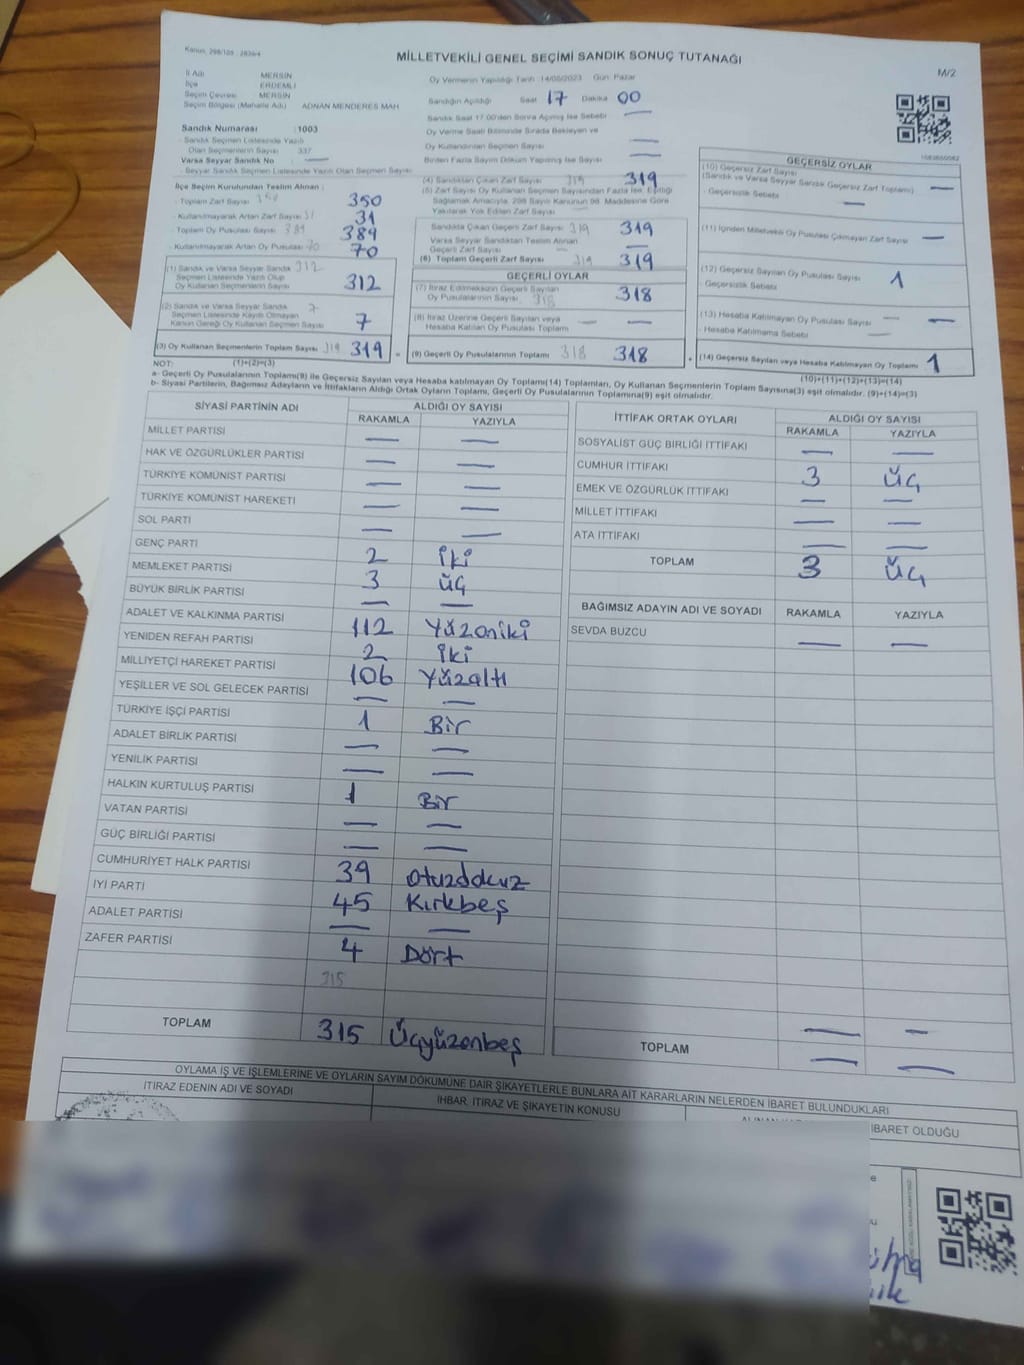 Kanun, 298/105 - 2839/4
MİLLETVEKİLİ GENEL SEÇİMİ SANDIK SONUÇ TUTANAĞI
M/2
İl Adı MERSİN
İlçe ERDEMLİ
Seçim Çevresi MERSİN
Seçim Bölgesi (Mahalle Adı) ADNAN MENDERES MAH
Oy Vermenin Yapıldığı Tarih :14/05/2023 Gün: Pazar
Sandığın Açıldığı Saat 17 Dakika 00
Sandık Saat 17:00'den Sonra Açılmış İse Sebebi —
Oy Verme Saati Bitiminde Sırada Bekleyen ve
Oy Kullandırılan Seçmen Sayısı —
Birden Fazla Sayım Döküm Yapılmış İse Sayısı —
Sandık Numarası :1003
- Sandık Seçmen Listesinde Yazılı
Olan Seçmenlerin Sayısı 337
Varsa Seyyar Sandık No —
- Seyyar Sandık Seçmen Listesinde Yazılı Olan Seçmen Sayısı
İlçe Seçim Kurulundan Teslim Alınan :
- Toplam Zarf Sayısı 350 350
- Kullanılmayarak Artan Zarf Sayısı 31 31
- Toplam Oy Pusulası Sayısı 389 389
- Kullanılmayarak Artan Oy Pusulası 70 70
(1) Sandık ve Varsa Seyyar Sandık 312
Seçmen Listesinde Yazılı Olup
Oy Kullanan Seçmenlerin Sayısı 312
(2) Sandık ve Varsa Seyyar Sandık 7
Seçmen Listesinde Kayıtlı Olmayan
Kanun Gereği Oy Kullanan Seçmen Sayısı 7
(3) Oy Kullanan Seçmenlerin Toplam Sayısı 319 319
(4) Sandıktan Çıkan Zarf Sayısı 319 319
(5) Zarf Sayısı Oy Kullanan Seçmen Sayısından Fazla İse, Eşitliği
Sağlamak Amacıyla, 298 Sayılı Kanunun 98. Maddesine Göre
Yakılarak Yok Edilen Zarf Sayısı —
Sandıkta Çıkan Geçerli Zarf Sayısı 319 319
Varsa Seyyar Sandıktan Teslim Alınan
Geçerli Zarf Sayısı — —
(6) Toplam Geçerli Zarf Sayısı 319 319
GEÇERLİ OYLAR
(7) İtiraz Edilmeksizin Geçerli Sayılan
Oy Pusulalarının Sayısı 318 318
(8) İtiraz Üzerine Geçerli Sayılan veya
Hesaba Katılan Oy Pusulaları Toplamı — —
(9) Geçerli Oy Pusulalarının Toplamı 318 318
GEÇERSİZ OYLAR
(10) Geçersiz Zarf Sayısı
(Sandık ve Varsa Seyyar Sandık Geçersiz Zarf Toplamı) —
- Geçersizlik Sebebi —
(11) İçinden Milletvekili Oy Pusulası Çıkmayan Zarf Sayısı —
(12) Geçersiz Sayılan Oy Pusulası Sayısı 1
- Geçersizlik Sebebi
(13) Hesaba Katılmayan Oy Pusulası Sayısı — —
- Hesaba Katılmama Sebebi —
(14) Geçersiz Sayılan veya Hesaba Katılmayan Oy Toplamı 1
NOT: (1)+(2)=(3) (10)+(11)+(12)+(13)=(14)
a- Geçerli Oy Pusulalarının Toplamı(9) ile Geçersiz Sayılan veya Hesaba katılmayan Oy Toplamı(14) Toplamları, Oy Kullanan Seçmenlerin Toplam Sayısına(3) eşit olmalıdır. (9)+(14)=(3)
b- Siyasi Partilerin, Bağımsız Adayların ve İttifakların Aldığı Ortak Oyların Toplamı, Geçerli Oy Pusulalarının Toplamına(9) eşit olmalıdır.
SİYASİ PARTİNİN ADI ALDIĞI OY SAYISI
RAKAMLA YAZIYLA
MİLLET PARTİSİ — —
HAK VE ÖZGÜRLÜKLER PARTİSİ — —
TÜRKİYE KOMÜNİST PARTİSİ — —
TÜRKİYE KOMÜNİST HAREKETİ — —
SOL PARTİ — —
GENÇ PARTİ 2 iki
MEMLEKET PARTİSİ 3 üç
BÜYÜK BİRLİK PARTİSİ — —
ADALET VE KALKINMA PARTİSİ 112 Yüzoniki
YENİDEN REFAH PARTİSİ 2 iki
MİLLİYETÇİ HAREKET PARTİSİ 106 Yüzaltı
YEŞİLLER VE SOL GELECEK PARTİSİ — —
TÜRKİYE İŞÇİ PARTİSİ 1 Bir
ADALET BİRLİK PARTİSİ — —
YENİLİK PARTİSİ — —
HALKIN KURTULUŞ PARTİSİ 1 Bir
VATAN PARTİSİ — —
GÜÇ BİRLİĞİ PARTİSİ — —
CUMHURİYET HALK PARTİSİ 39 otuzdokuz
İYİ PARTİ 45 Kırkbeş
ADALET PARTİSİ — —
ZAFER PARTİSİ 4 Dört
315
TOPLAM 315 Üçyüzonbeş
İTTİFAK ORTAK OYLARI ALDIĞI OY SAYISI
RAKAMLA YAZIYLA
SOSYALİST GÜÇ BİRLİĞİ İTTİFAKI — —
CUMHUR İTTİFAKI 3 üç
EMEK VE ÖZGÜRLÜK İTTİFAKI — —
MİLLET İTTİFAKI — —
ATA İTTİFAKI — —
TOPLAM 3 üç
BAĞIMSIZ ADAYIN ADI VE SOYADI RAKAMLA YAZIYLA
SEVDA BUZCU — —
— —
TOPLAM — —
OYLAMA İŞ VE İŞLEMLERİNE VE OYLARIN SAYIM DÖKÜMÜNE DAİR ŞİKAYETLERLE BUNLARA AİT KARARLARIN NELERDEN İBARET BULUNDUKLARI
İTİRAZ EDENİN ADI VE SOYADI İHBAR, İTİRAZ VE ŞİKAYETİN KONUSU İBARET OLDUĞU